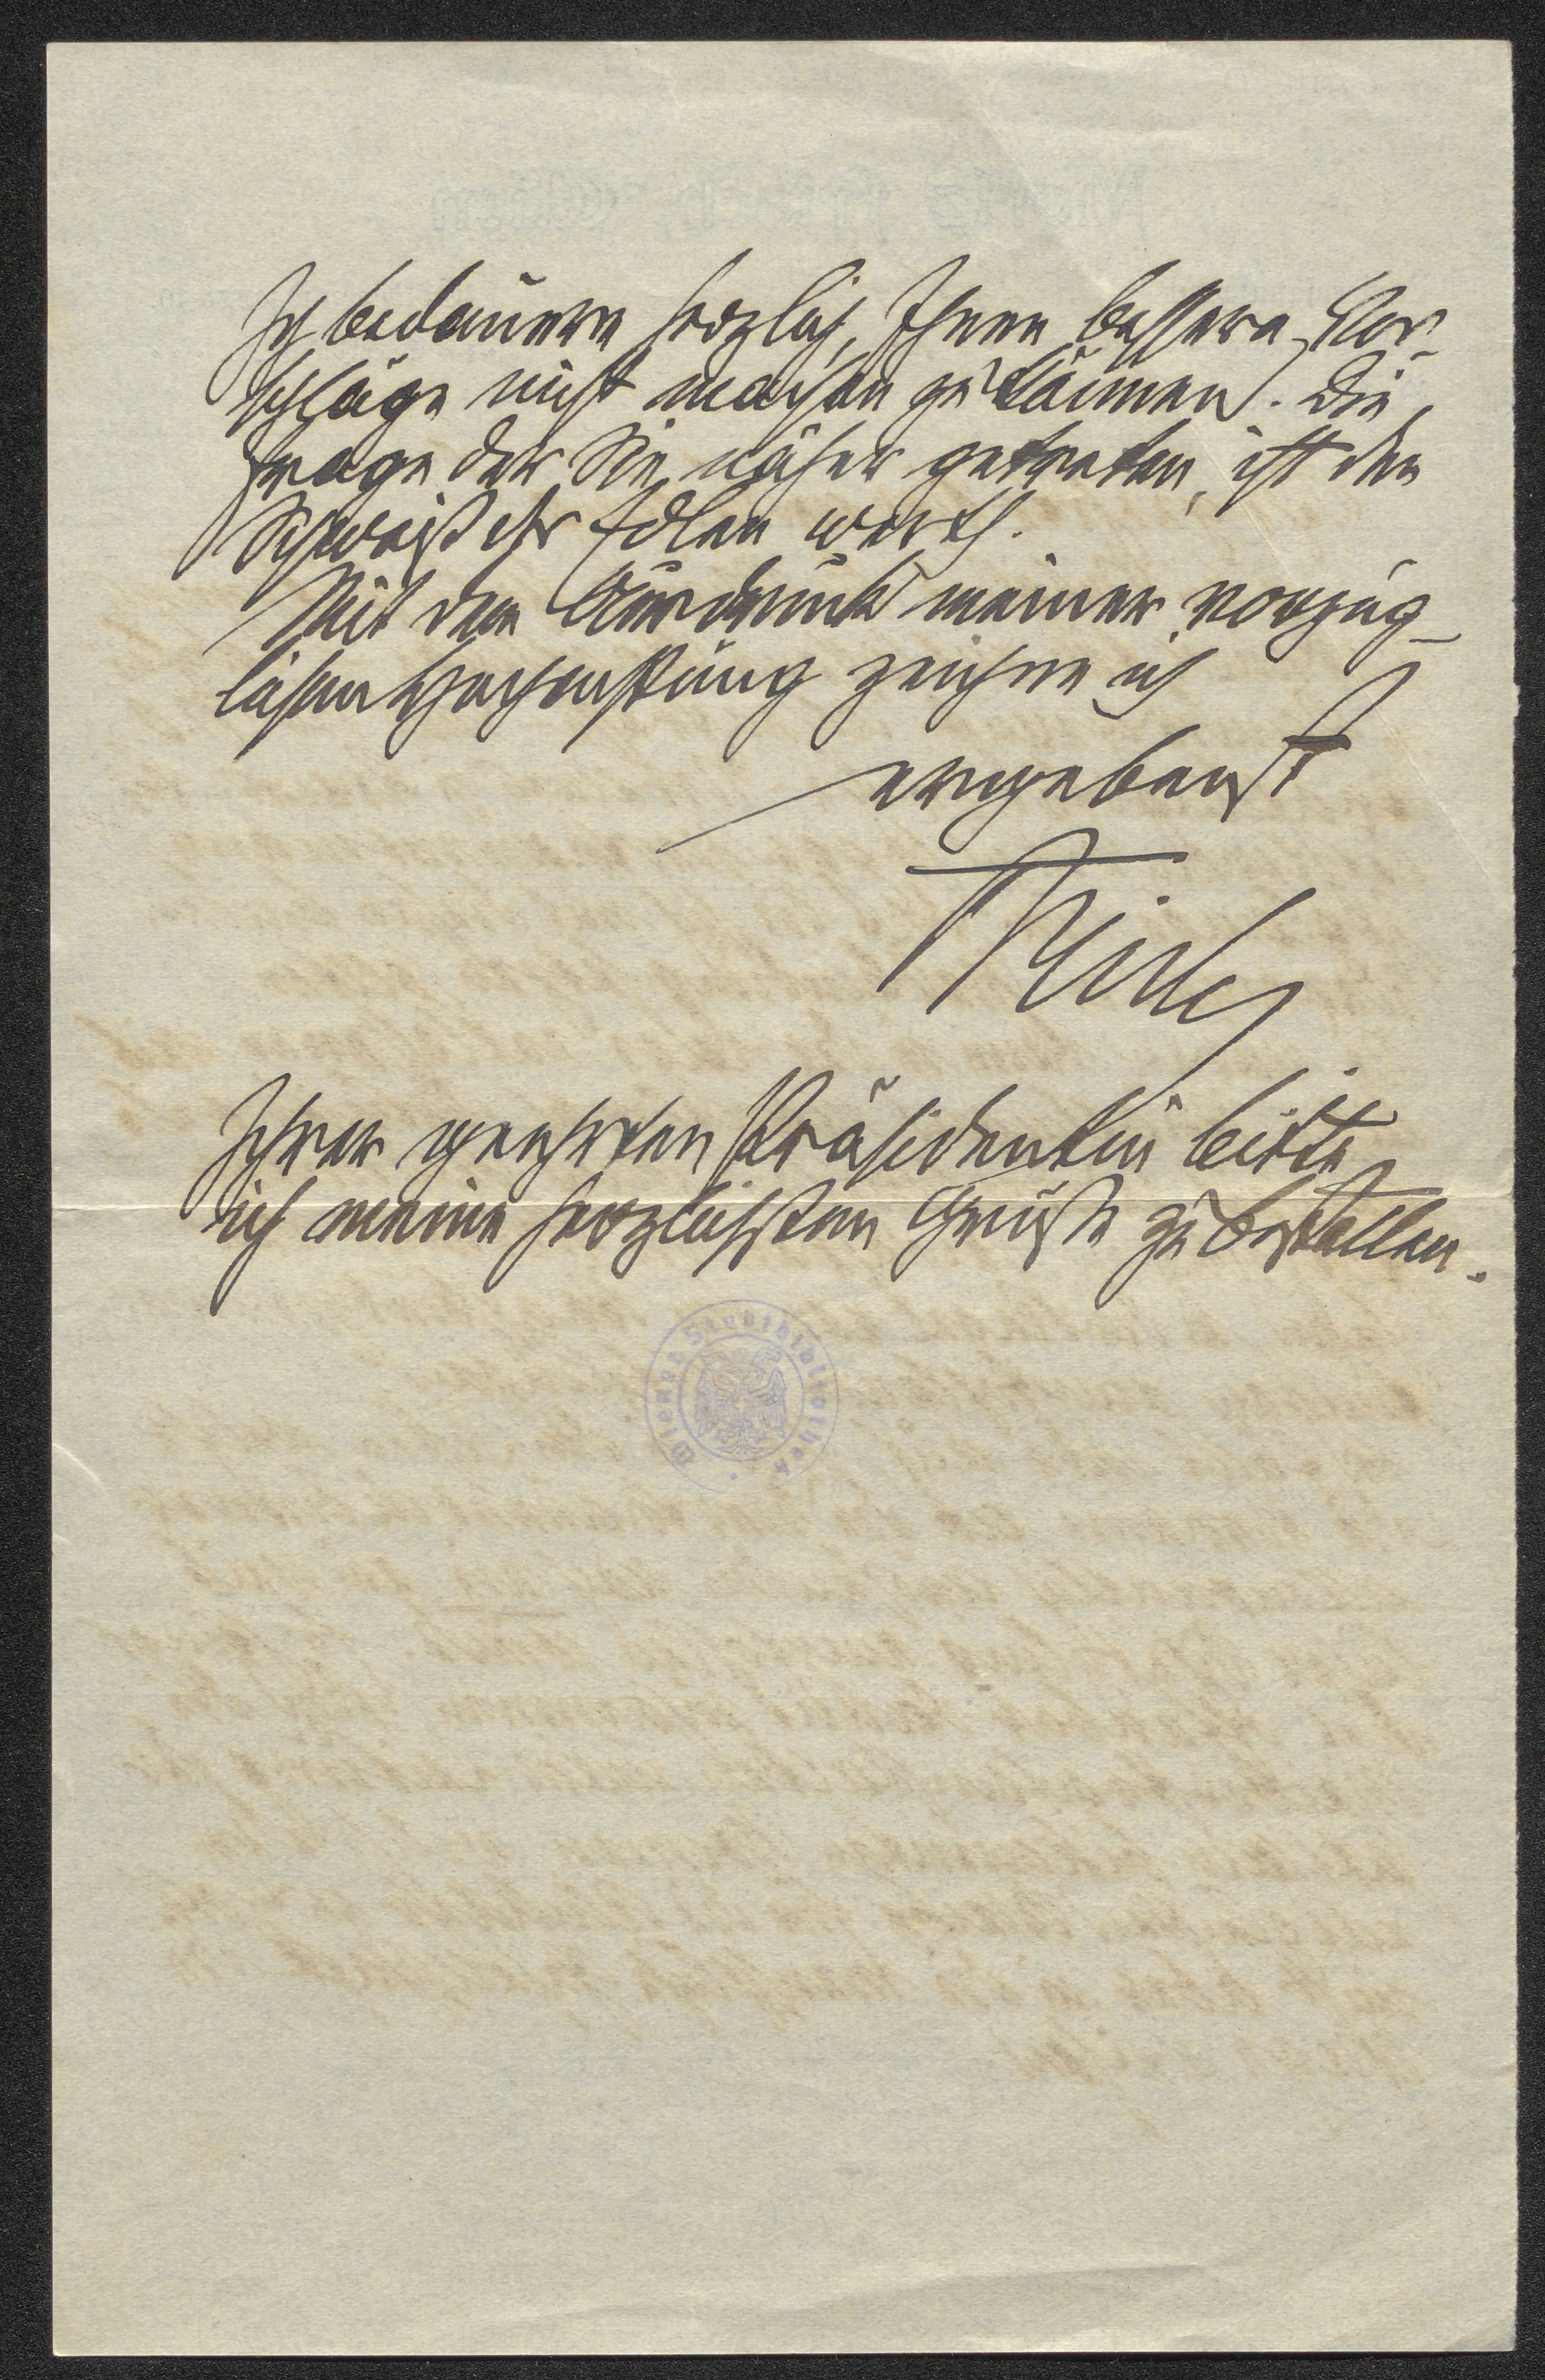 Ich bedauere herzlich, Ihnen bessere Vor-
schläge nicht machen zu können. Die
Frage der Sie näher getreten, ist den
Schweiß der Edlen werth.
Mit dem Ausdruck meiner vorzüg-
lichen Hochachtung zeichne ich
ergebenst
Ihrer geehrten Präsidentin bitte
ich meine herzlichsten Grüße zu bestellen.
Wiener Stadtbibliothek